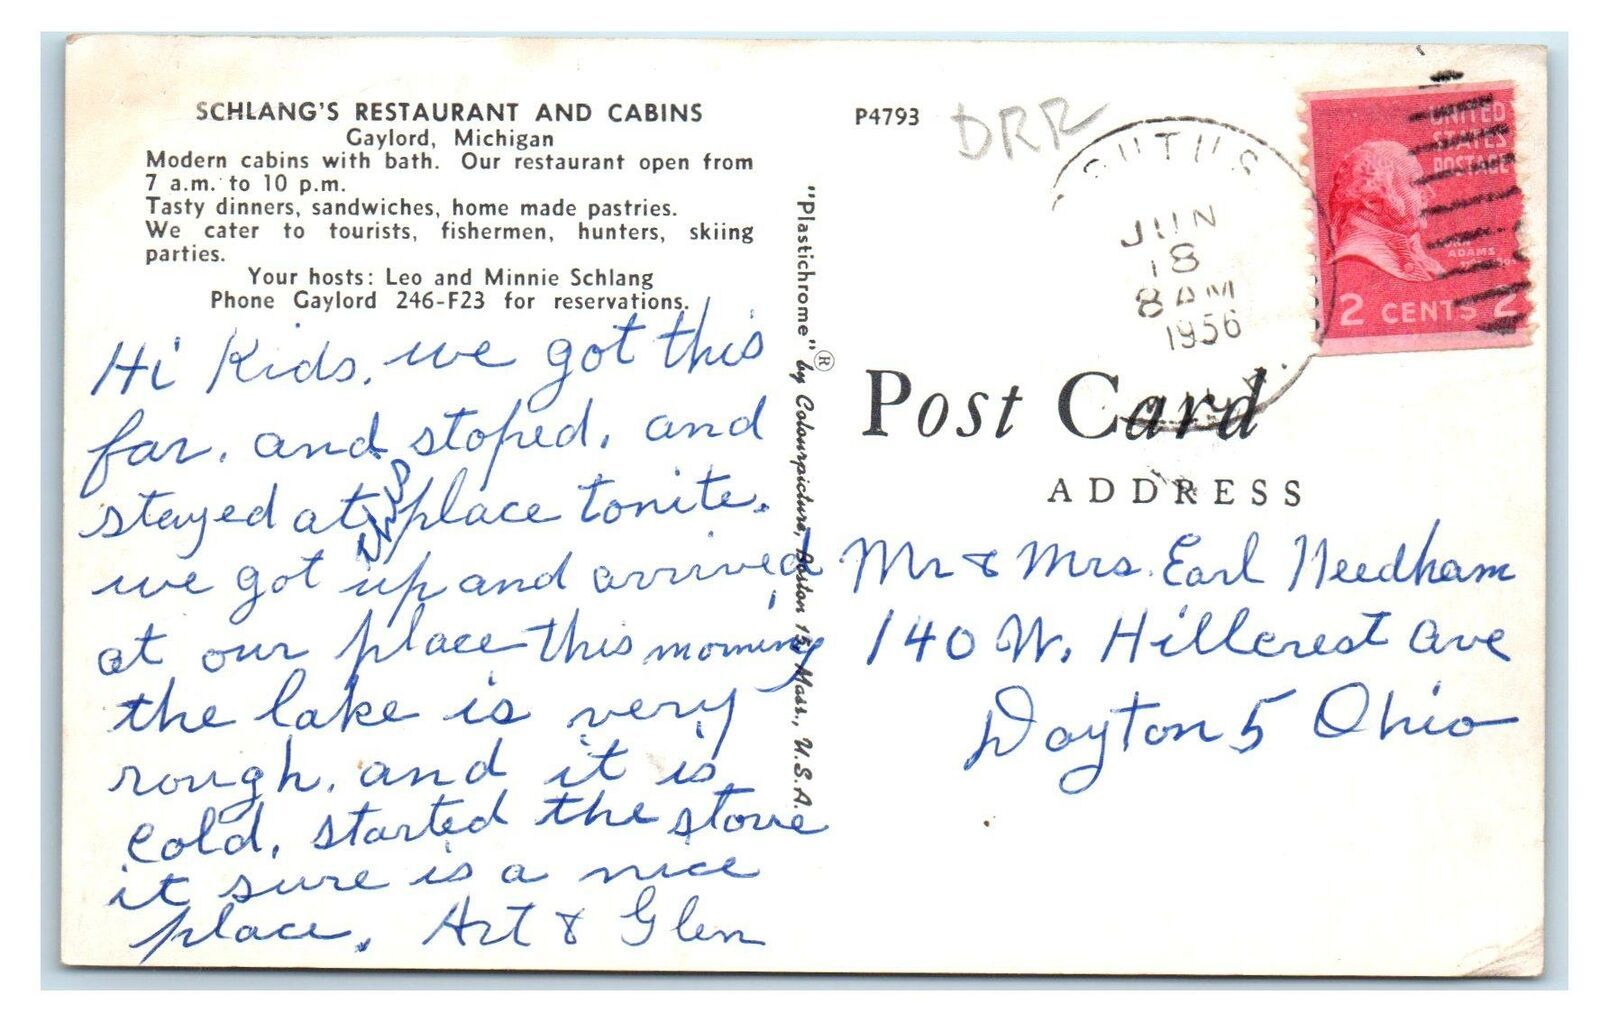 SCHLANG'S RESTAURANT AND CABINS
Gaylord, Michigan
Modern cabins with bath. Our restaurant open from
7 a.m. to 10 p.m.
Tasty dinners, sandwiches, home made pastries.
We cater to tourists, fishermen, hunters, skiing
parties.
Your hosts: Leo and Minnie Schlang
Phone Gaylord 246-F23 for reservations.
Hi Kids, we got this
far, and stoped, and
stayed at this place tonite.
we got up and arrived
at our place this morning
the lake is very
rough, and it is
cold, started the stove
it sure is a nice
place. Art & Glen
"Plastichrome"® by Colourpicture, Boston 15, Mass., U.S.A.
P4793
DRR
BRUTUS
JUN
18
8 AM
1956
UNITED
STATES
POSTAGE
ADAMS
2 CENTS 2
Post Card
ADDRESS
Mr & Mrs. Earl Needham
140 W. Hillcrest Ave
Dayton 5 Ohio